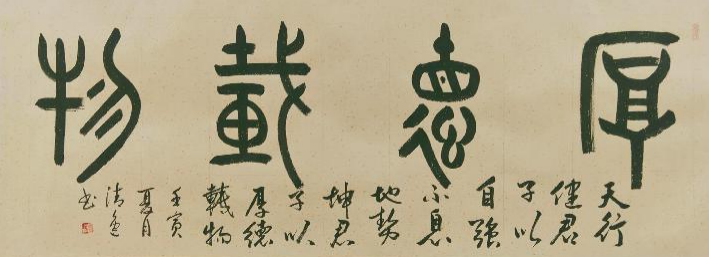 厚德載物
天行
健君
子以
自強
不息
地勢
坤君
子以
厚德
載物
壬寅
夏月
书